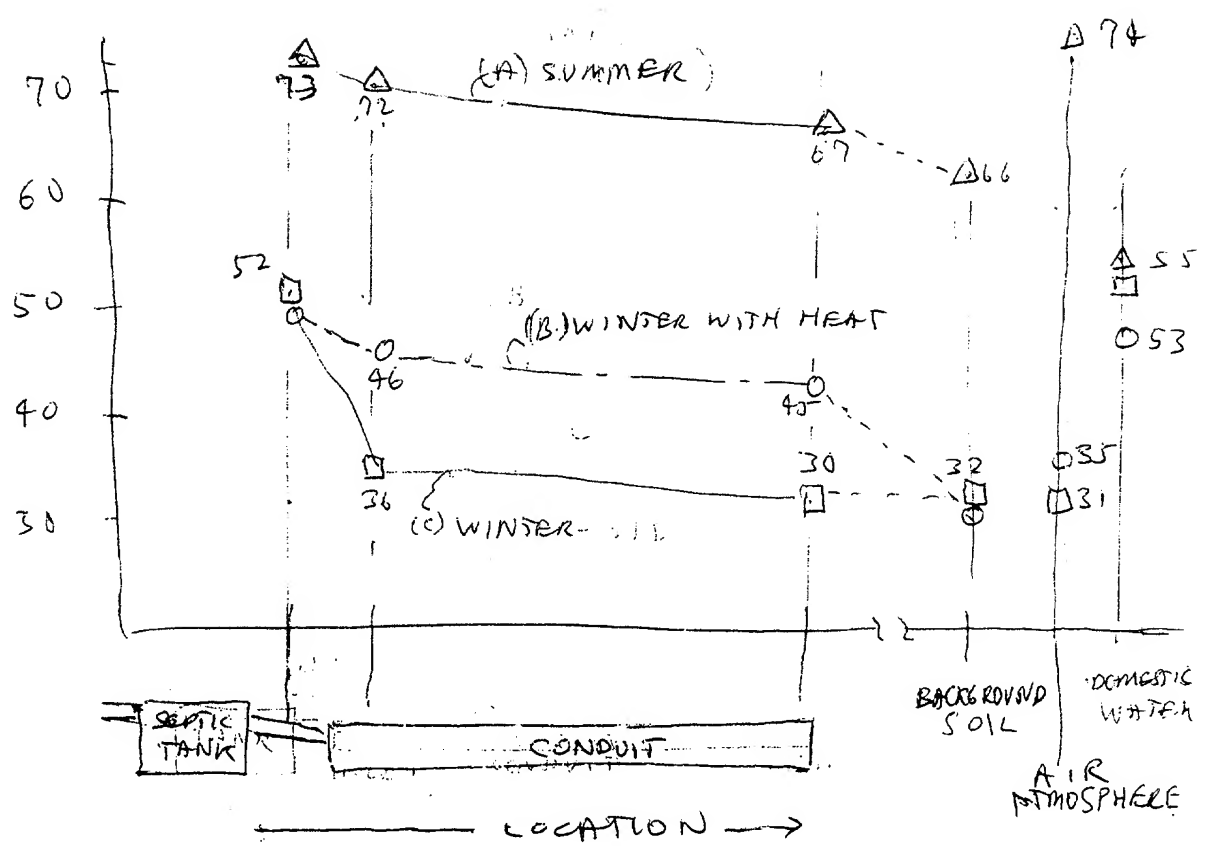 74
70
73
72
(A) SUMMER
67
66
60
52
55
50
(B.) WINTER WITH HEAT
53
46
45
40
30
32
35
36
31
30
(C) WINTER
SEPTIC
TANK
CONDUIT
BACKGROUND
SOIL
DOMESTIC
WATER
AIR
ATMOSPHERE
LOCATION